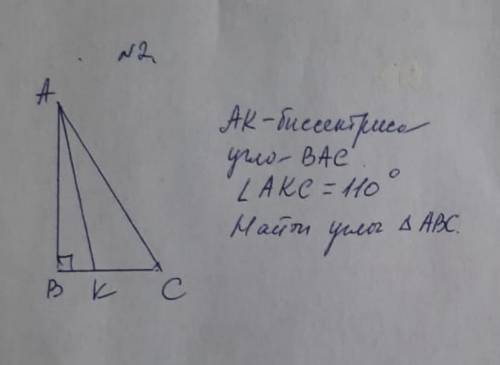 N2
A
B K C
AK-биссектриса
угла BAC.
∠AKC = 110°
Найти углы △ABC.